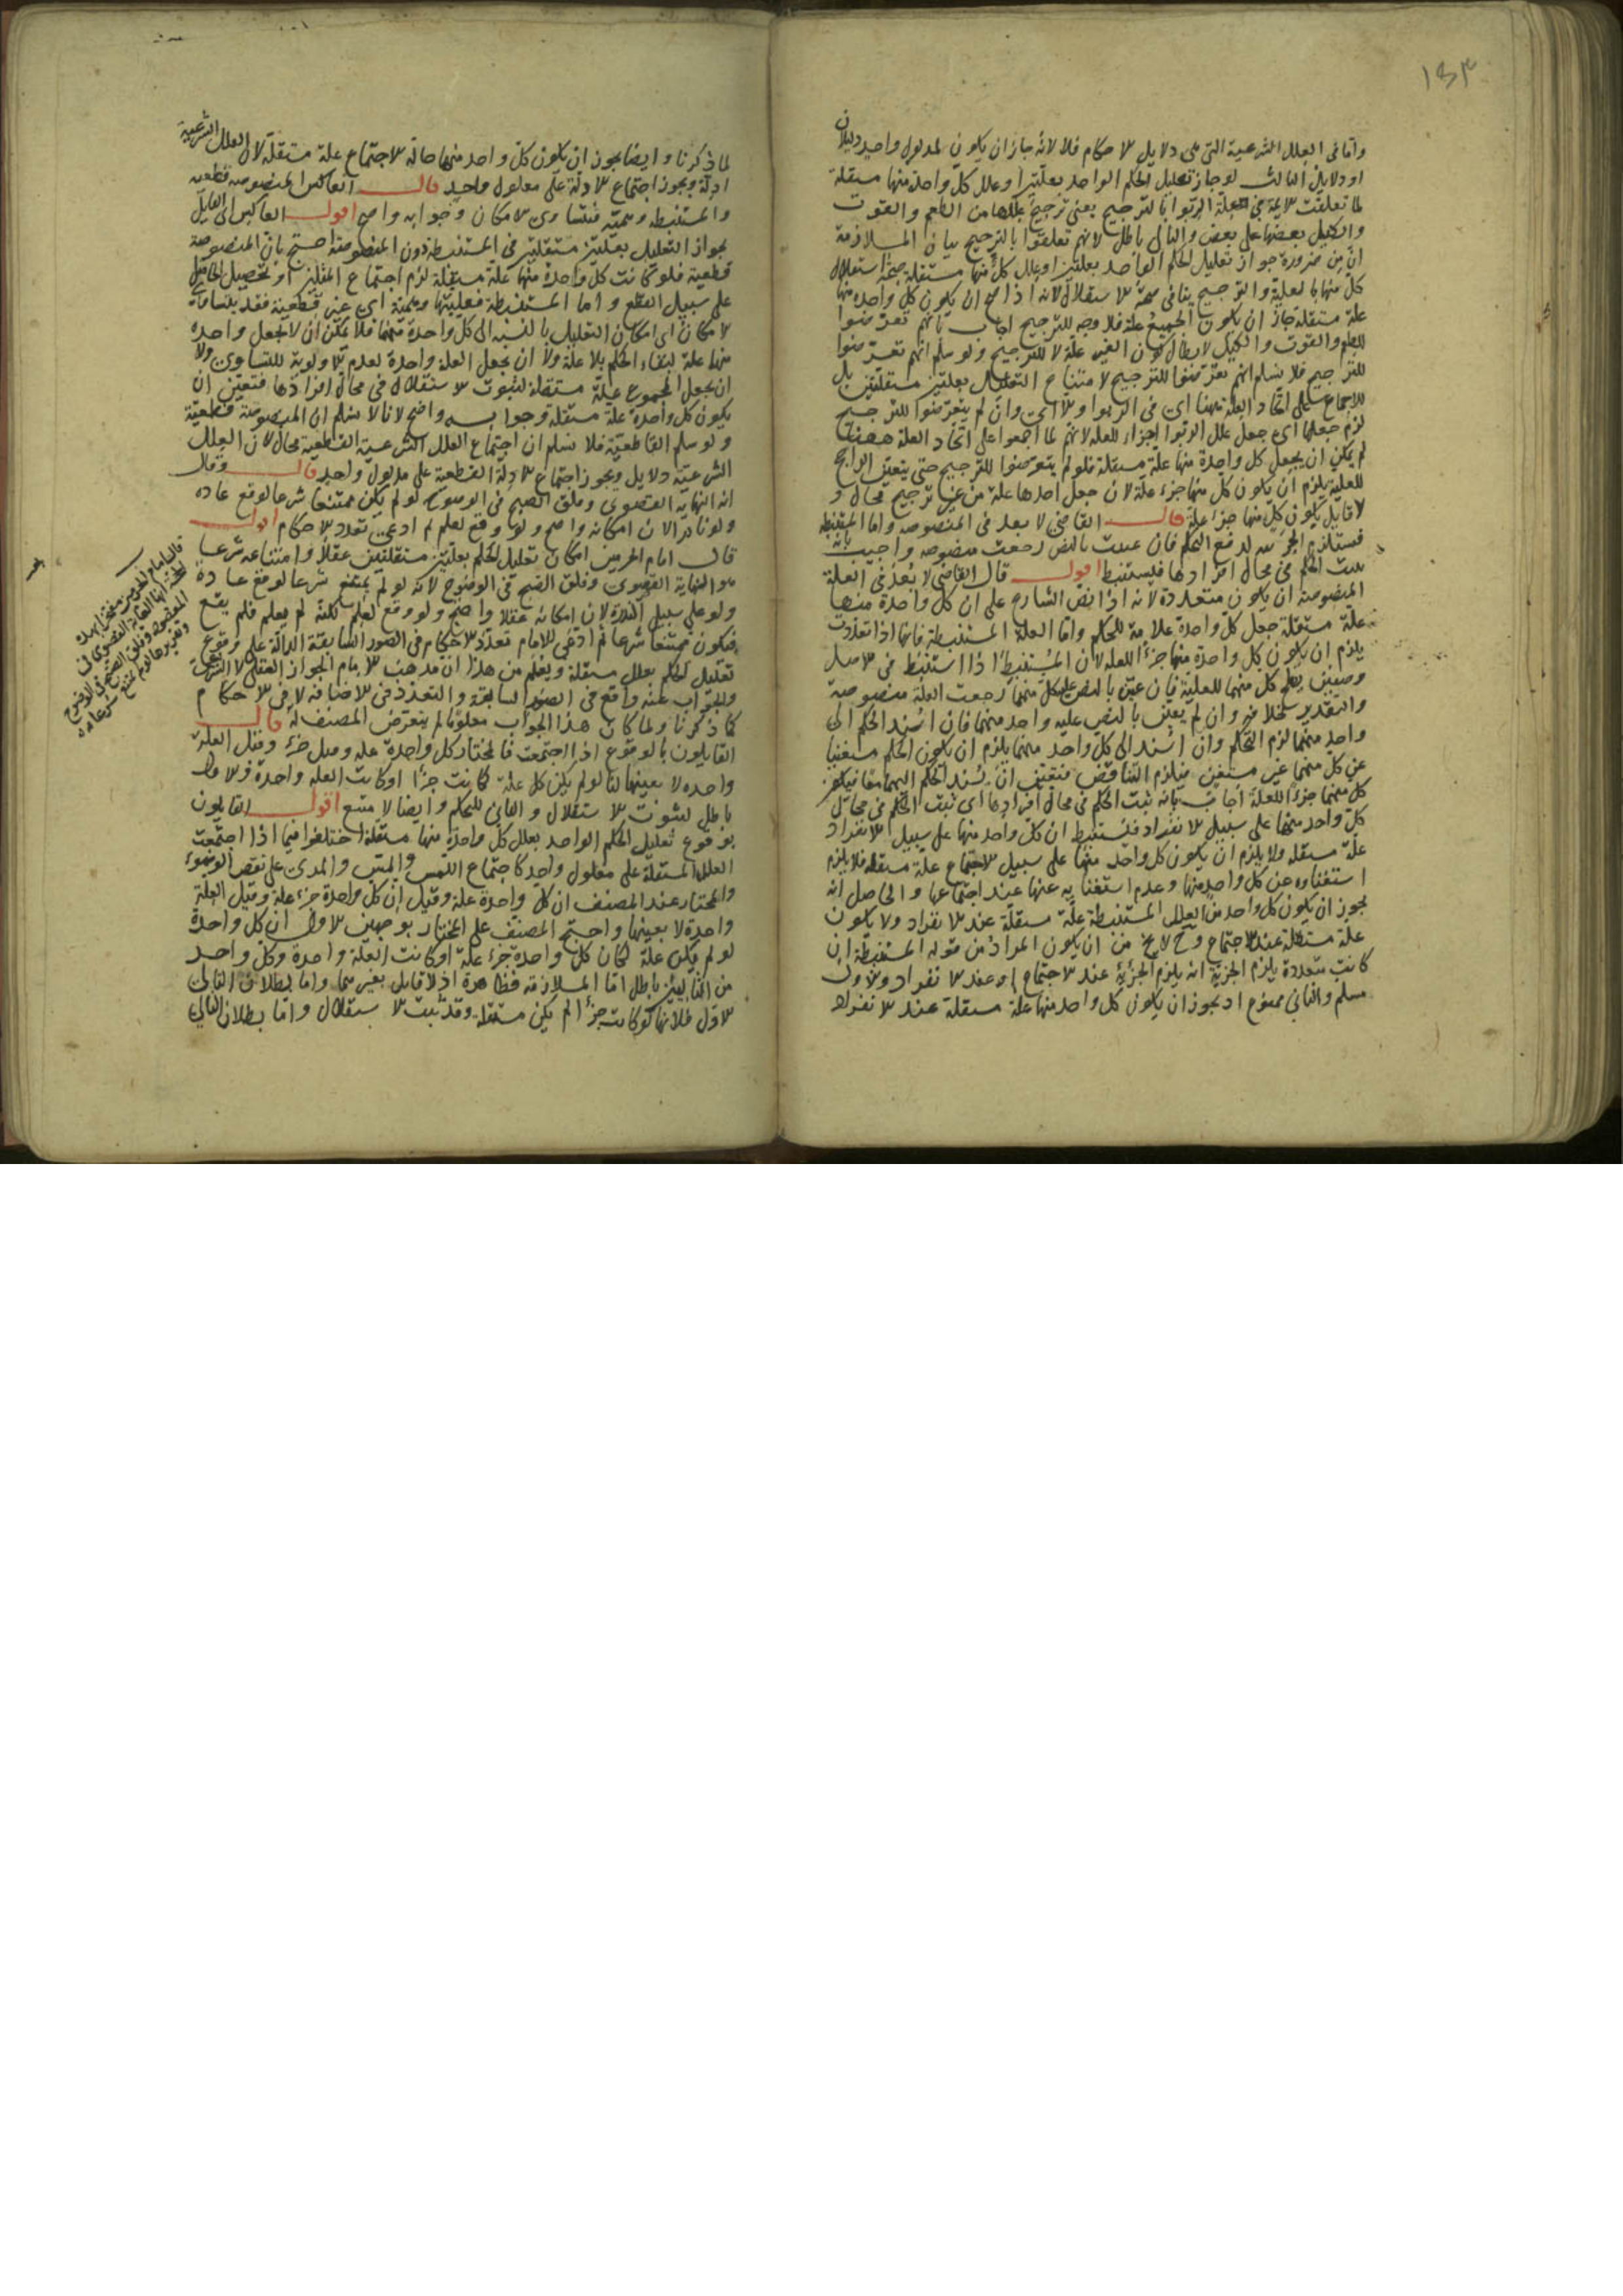 ١٥٣
واما فى العلل الشرعية التى هى دلايل الاحكام فلا لانه جاز ان يكون لمدلول واحد دليلان
او دلايل الثالث لو جاز تعليل الحكم الواحد بعلتين او علل كل واحدة منها مستقلة
لما تعلقت الايمة فى علة الربوا بالترجيح يعنى ترجيح علله من الطعم والقوت
والكيل بعضها على بعض والتالى باطل لانهم تعلقوا بالترجيح بيان الملازمة
ان من ضرورة جواز تعليل الحكم الواحد بعلتين او علل كل منها مستقلة صحة استقلال
كل منها بالعلية والترجيح ينافى صحة الاستقلال لانه اذا صح ان يكون كل واحدة منها
علة مستقلة جاز ان يكون الجميع علة فلا وجه للترجيح اجاب بانهم تعرضوا
للطعم والقوت والكيل لابطال كون الغير علة لا للترجيح ولو سلم انهم تعرضوا
للترجيح فلا نسلم انهم تعرضوا للترجيح لامتناع التعليل بعلتين مستقلتين بل
للاجماع على اتحاد العلة ههنا اى فى الربوا والا اى وان لم يتعرضوا للترجيح
لزم جعلها اى جعل علل الربوا اجزاء للعلة لانهم لما اجمعوا على اتحاد العلة ههنا
لم يمكن ان يجعل كل واحدة منها علة مستقلة فلو لم يتعرضوا للترجيح حتى يتعين الراجح
للعلية يلزم ان يكون كل منها جزء علة لان جعل احدها علة من غير ترجيح محال و
لا قايل بكون كل منها جزء علة قال القاضى لا بعد فى المنصوصة واما المستنبطة
فتستلزم الجزئية لدفع التحكم فان عينت بالنص رجعت منصوصة واجيب بانه
يثبت الحكم فى محال افرادها فيستنبط اقول قال القاضى لا بعد فى العلة
المنصوصة ان يكون متعددة لانه اذا نص الشارع على ان كل واحدة منها
علة مستقلة جعل كل واحدة علامة للحكم واما العلة المستنبطة فانها اذا تعددت
يلزم ان يكون كل واحدة منها جزأ للعلة لان المستنبط اذا استنبط فى الاصل
وصفين يصلح كل منهما للعلية فان عين بالنص علية كل منهما رجعت العلة منصوصة
والتقدير بخلافه وان لم يعين بالنص عليه واحد منهما فان اسند الحكم الى
واحد منهما لزم التحكم وان اسند الى كل واحد منهما يلزم ان يكون الحكم مستغنيا
عن كل منهما غير مستغن فيلزم التناقض فتعين ان يسند الحكم اليهما معا فيكون
كل منهما جزء للعلة اجاب بانه يثبت الحكم فى محال افرادها اى ثبت الحكم فى محال
كل واحد منهما على سبيل الانفراد فيستنبط ان كل واحد منها على سبيل الانفراد
علة مستقلة ولا يلزم ان يكون كل واحد منهما على سبيل الاجتماع علة مستقلة فلا يلزم
استغناوه عن كل واحد منها وعدم استغنايه عنها عند اجتماعها والحاصل انه
يجوز ان يكون كل واحد من العلل المستنبطة علة مستقلة عند الانفراد ولا يكون
علة مستقلة عند الاجتماع وح لا يخ من ان يكون المراد من قوله المستنبطة ان
كانت متعددة يلزم الجزئية انه يلزم الجزئية عند الاجتماع او عند الانفراد والاول
مسلم والثانى ممنوع اذ يجوز ان يكون كل واحد منها علة مستقلة عند الانفراد
لما ذكرنا وايضا يجوز ان يكون كل واحد منها حالة الاجتماع علة مستقلة لان العلل الشرعية
ادلة ويجوز اجتماع الادلة على معلول واحد قال العاكس المنصوصة قطعية
والمستنبطة وهمية فتتساوى الامكان وجوابه واضح اقول العاكس اى القايل
بجواز التعليل بعلتين مستقلتين فى المستنبطة دون المنصوصة احتج بان المنصوصة
قطعية فلو كانت كل واحدة منها علة مستقلة لزم اجتماع المثلين او تحصيل الحاصل
على سبيل القطع واما المستنبطة فعليتها وهمية اى غير قطعية فقد يتساوى
الامكان اى امكان التعليل بالنسبة الى كل واحدة منهما فلا يمكن ان لا يجعل واحدة
منها علة لبقاء الحكم بلا علة ولا ان يجعل العلة واحدة لعدم الاولوية للتساوى ولا
ان يجعل المجموع علة مستقلة لثبوت الاستقلال فى محال افرادها فتعين ان
يكون كل واحدة علة مستقلة وجوابه واضح لانا لا نسلم ان المنصوصة قطعية
ولو سلم القاطعية فلا نسلم ان اجتماع العلل الشرعية القطعية محال لان العلل
الشرعية دلايل ويجوز اجتماع الادلة القطعية على مدلول واحد قال وقال
انه النهاية القصوى وفلق الصبح فى الوضوح لو لم يكن ممتنعا شرعا لوقع عادة
ولو نادرا لان امكانه واضح ولو وقع لعلم ثم ادعى تعدد الاحكام اقول
قال امام الحرمين امكان تعليل الحكم بعلتين مستقلتين عقلا وامتناعه شرعا
هو النهاية القصوى وفلق الصبح فى الوضوح لانه لو لم يمتنع شرعا لوقع عادة
ولو على سبيل الندرة لان امكانه عقلا واضح ولو وقع لعلم لكنه لم يعلم فلم يقع
فيكون ممتنعا شرعا ثم ادعى الامام تعدد الاحكام فى الصور السابقة الدالة على وقوع
تعليل الحكم بعلل مستقلة ويعلم من هذا ان مذهب الامام الجواز العقلى لا الشرعى
والجواب عنه واقع فى الصور السابقة والتعدد فى الاضافة لا فى الاحكام
كما ذكرنا ولما كان هذا الجواب معلوما لم يتعرض المصنف له قال
القايلون بالوقوع اذا اجتمعت فالمختار كل واحدة علة وقيل جزء وقيل العلة
واحدة لا بعينها لنا لو لم يكن كل علة كانت جزأ او كانت العلة واحدة والاول
باطل لثبوت الاستقلال والثانى للتحكم وايضا لامتنع اقول القايلون
بوقوع تعليل الحكم الواحد بعلل كل واحدة منها مستقلة اختلفوا فيما اذا اجتمعت
العلل المستقلة على معلول واحد كاجتماع اللمس والمس والمذى على نقض الوضوء
والمختار عند المصنف ان كل واحدة علة وقيل ان كل واحدة جزء علة وقيل العلة
واحدة لا بعينها واحتج المصنف على المختار بوجهين الاول ان كل واحدة
لو لم يكن علة لكان كل واحدة جزء علة او كانت العلة واحدة وكل واحد
من التاليين باطل اما الملازمة فظاهرة اذ لا قايل بغيرهما واما بطلان التالى
الاول فلانها لو كانت جزأ لم يكن مستقلة وقد ثبت الاستقلال واما بطلان التالى
قال الامام
انها الغاية القصوى فى
وفلق الصبح فى الوضوح